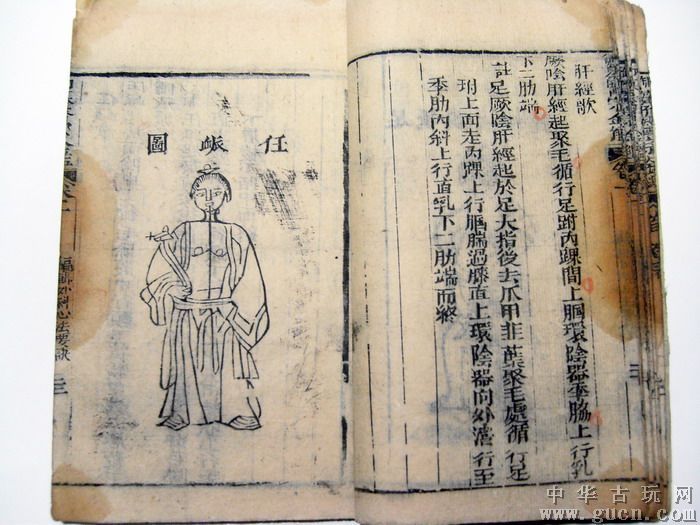 肝經歌
厥陰肝經起聚毛循行足跗內踝間上膕環陰器季脇上行乳
下二肋端
註足厥陰肝經起於足大指後去爪甲韭葉聚毛處循行足
跗上面走內踝上行膕腨過膝直上環陰器向外濇行至
季肋內斜上行直乳下二肋端而終
任脈圖
編輯外科心法要訣
中华古玩网
www.gucn.com